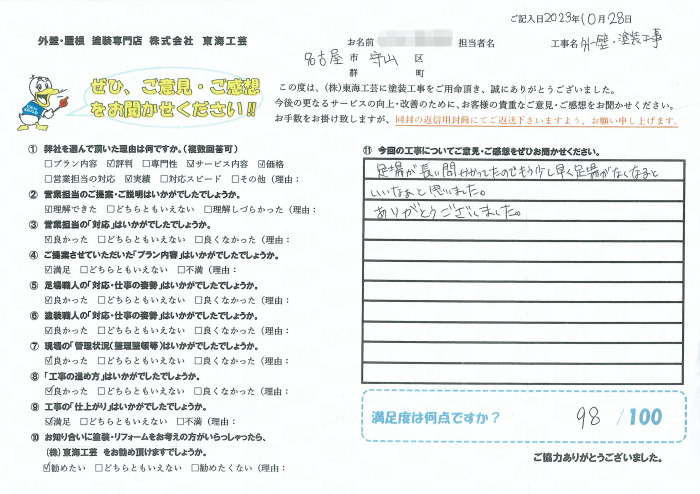 ご記入日2023年10月28日
外壁・屋根 塗装専門店 株式会社 東海工芸
お名前 担当者名 工事名 外壁・塗装工事
名古屋市 守山区
群 町
ぜひ、ご意見・ご感想
をお聞かせください!!
この度は、(株)東海工芸に塗装工事をご用命頂き、誠にありがとうございました。
今後の更なるサービスの向上・改善のために、お客様の貴重なご意見・ご感想をお聞かせください。
お手数をお掛け致しますが、同封の返信用封筒にてご返送下さいますよう、お願い申し上げます。
① 弊社を選んで頂いた理由は何ですか。(複数回答可)
□プラン内容 ☑評判 □専門性 ☑サービス内容 ☑価格
□営業担当の対応 ☑実績 □対応スピード □その他(理由:
② 営業担当のご提案・ご説明はいかがでしたでしょうか。
☑理解できた □どちらともいえない □理解しづらかった(理由:
③ 営業担当の「対応」はいかがでしたでしょうか。
☑良かった □どちらともいえない □良くなかった(理由:
④ ご提案させていただいた「プラン内容」はいかがでしたでしょうか。
☑満足 □どちらともいえない □不満(理由:
⑤ 足場職人の「対応・仕事の姿勢」はいかがでしたでしょうか。
☑良かった □どちらともいえない □良くなかった(理由:
⑥ 塗装職人の「対応・仕事の姿勢」はいかがでしたでしょうか。
☑良かった □どちらともいえない □良くなかった(理由:
⑦ 現場の「管理状況(整理整頓等)はいかがでしたでしょうか。
☑良かった □どちらともいえない □良くなかった(理由:
⑧ 「工事の進め方」はいかがでしたでしょうか。
☑良かった □どちらともいえない □良くなかった(理由:
⑨ 工事の「仕上がり」はいかがでしたでしょうか。
☑満足 □どちらともいえない □不満(理由:
⑩ お知り合いに塗装・リフォームをお考えの方がいらっしゃったら、
(株)東海工芸 をお勧め頂けますでしょうか。
☑勧めたい □どちらともいえない □勧めたくない(理由:
⑪ 今回の工事についてご意見・ご感想をぜひお聞かせください。
足場が長い間かかってたのでもう少し早く足場がなくなると
いいなあと思いました。
ありがとうございました。
満足度は何点ですか? 98 /100
ご協力ありがとうございました。